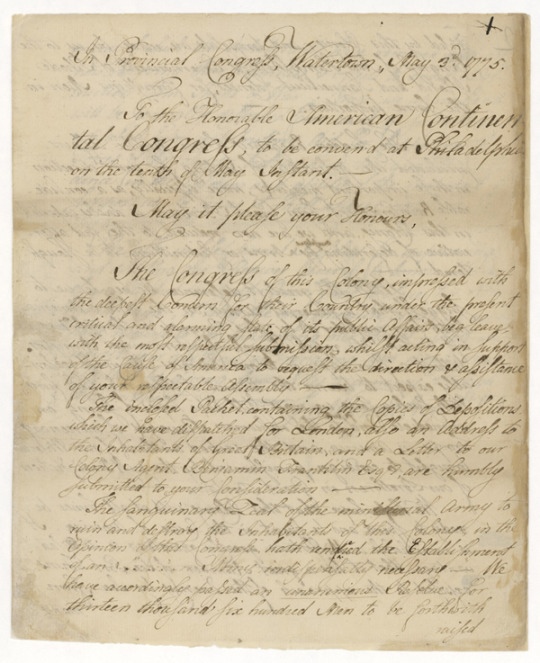 In Provincial Congress, Watertown, May 3d. 1775.
To the Honorable American Continen
tal Congress, to be convend at Philadelphia
on the tenth of May Instant.—
May it please your Honours,
The Congress of this Colony, impressed with
the deepest Concern for their Country under the present
critical and alarming State of its public Affairs, beg leave
with the most respectful submission, whilst acting in support
of the Cause of America, to request the direction & assistance
of your respectable Assembly —
The inclosed Packet, containing the Copies of Depositions
which we have despatched for London, also an Address to
the Inhabitants of Great Britain, and a Letter to our
Colony Agent, Benjamin Franklin Esqr are humbly
submitted to your Consideration —
The sanguinary Zeal of the ministerial Army to
ruin and destroy the Inhabitants of this Colony, in the
Opinion of this Congress hath rendered the Establishment
of an necessary — We
have accordingly passed an unanimous Resolve for
thirteen thousand six hundred Men to be forthwith
raised